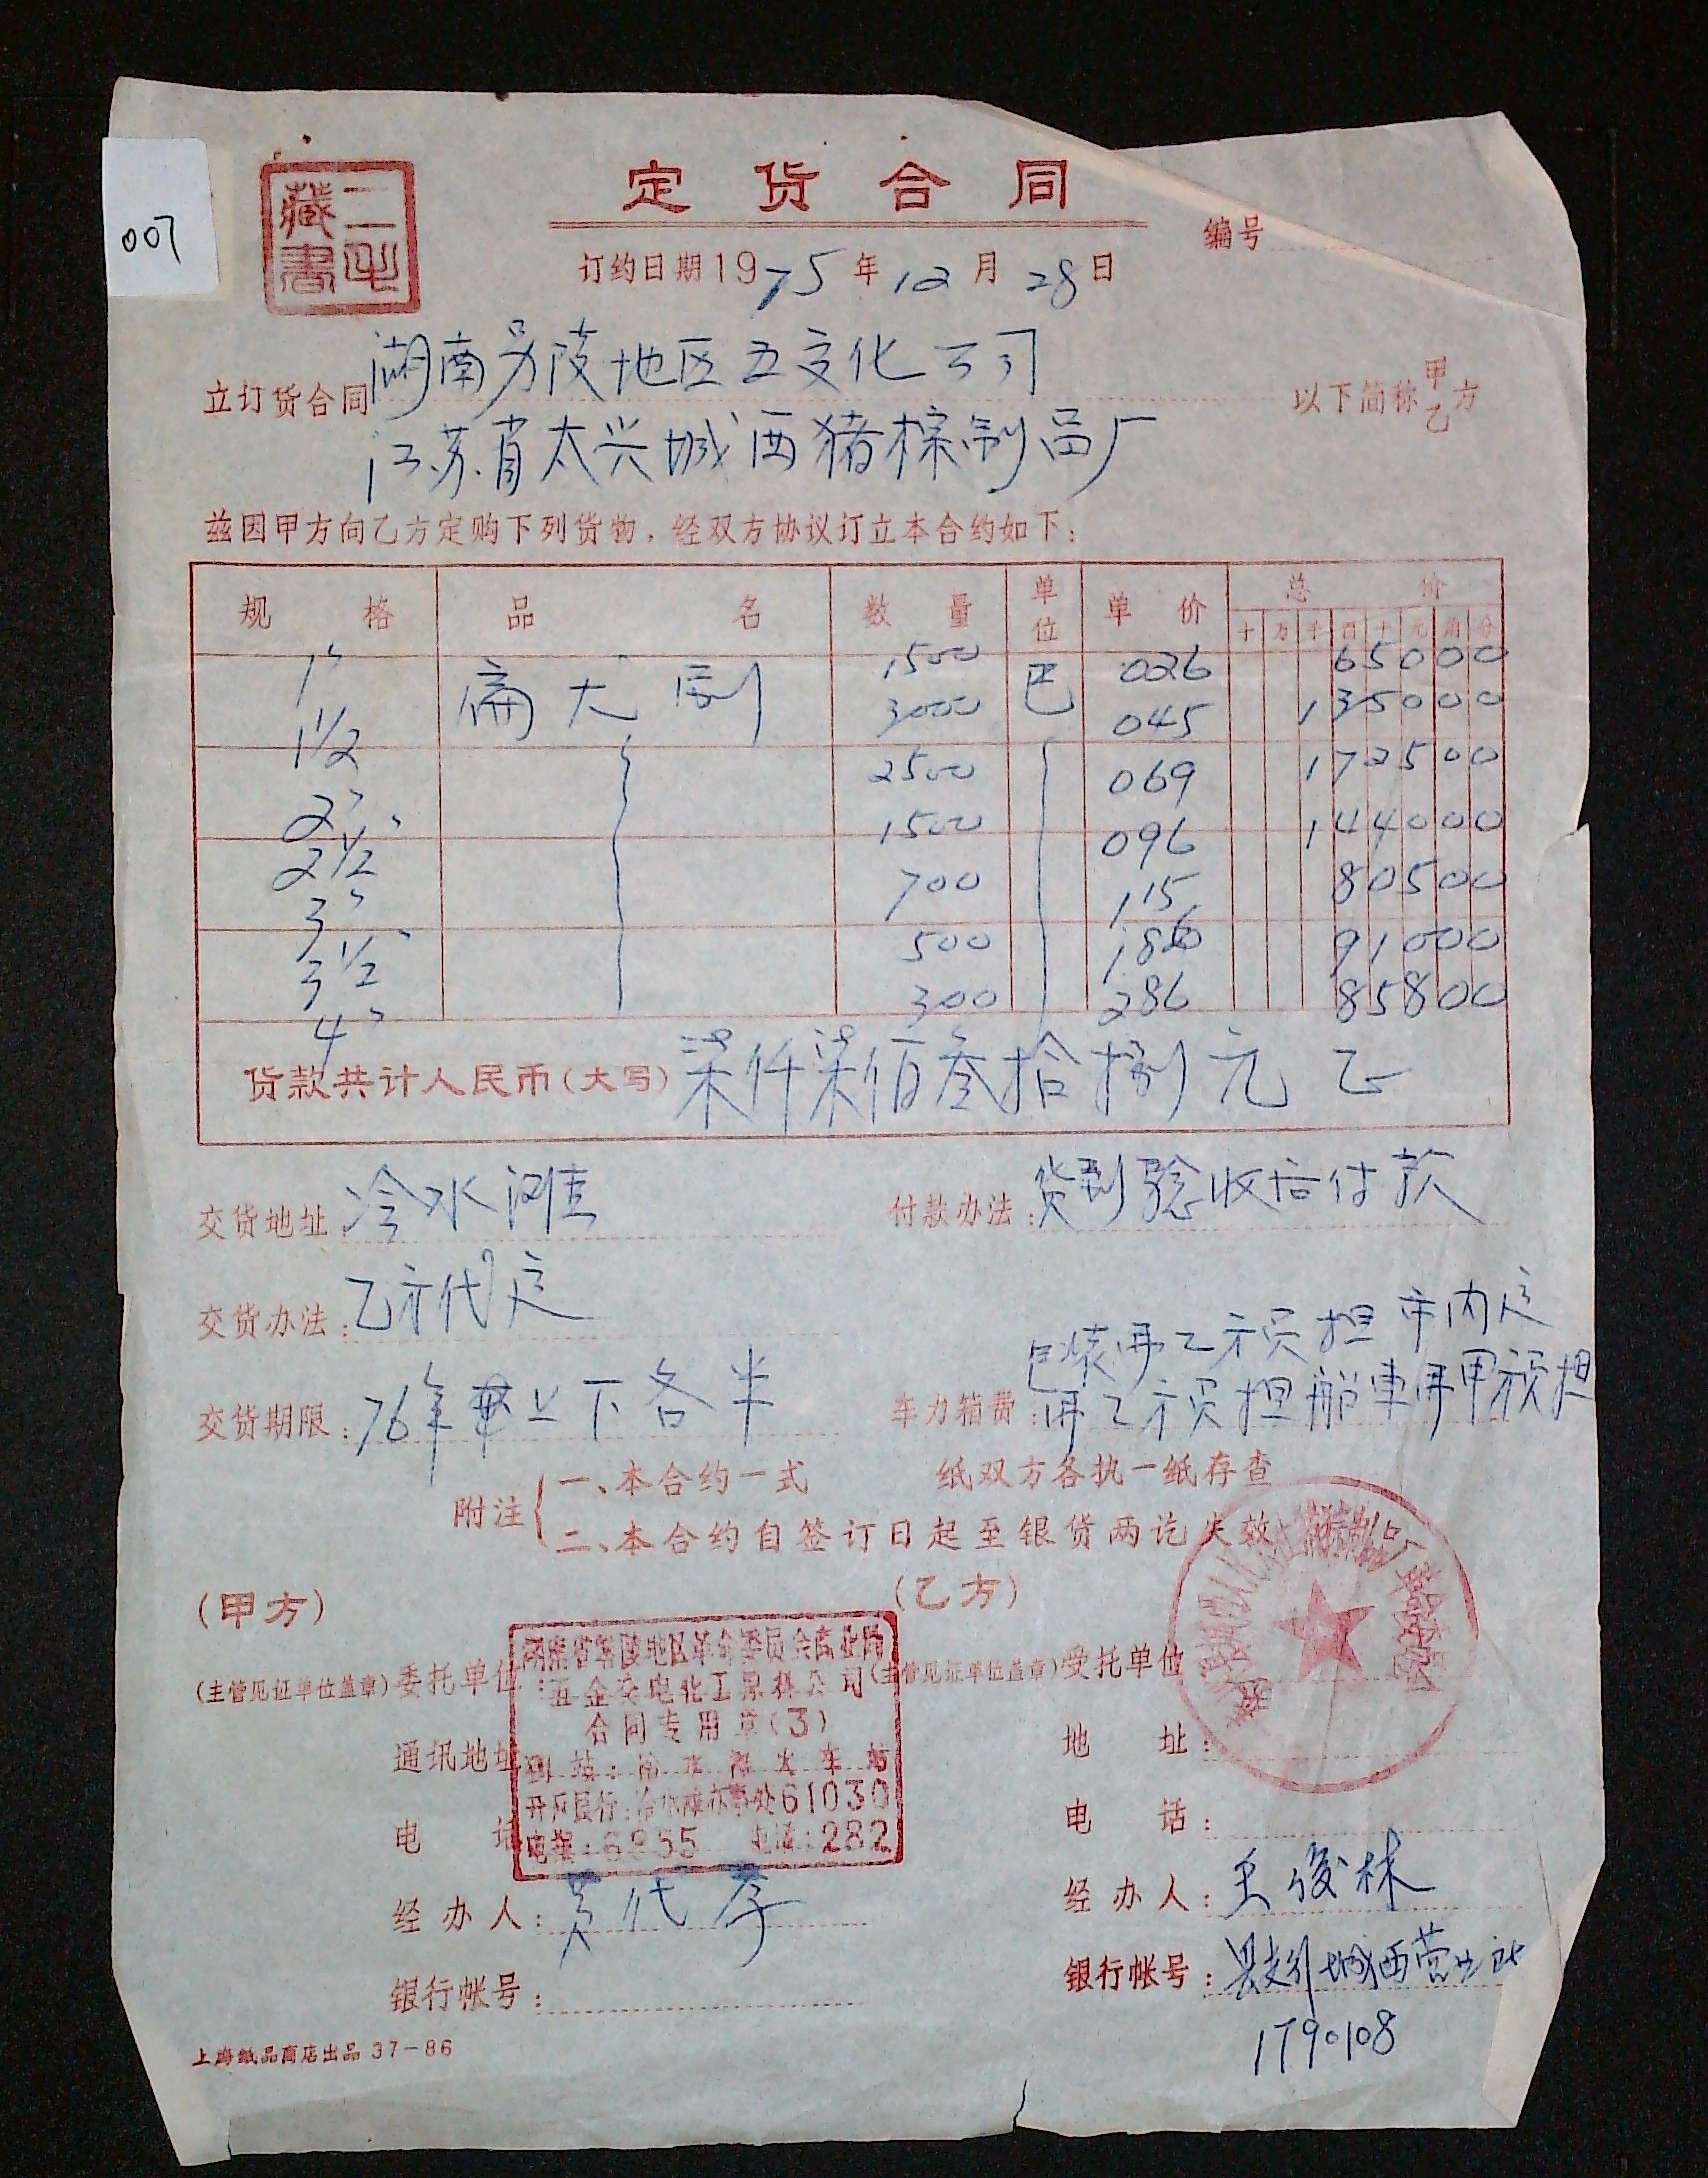 007
二乎藏書
定货合同
编号
订约日期1975年12月28日
湖南另陵地区五交化公司
立订货合同 以下简称甲乙方
江苏省太兴城西猪棕制品厂
兹因甲方向乙方定购下列货物，经双方协议订立本合约如下：
规格 品名 数量 单位 单价 总价
十 万 千 百 十 元 角 分
1" 扁大刷 1500 巴 026 65000
1 1/2 3000 045 135000
2" 2500 069 172500
2 1/2" 1500 096 144000
3" 700 115 80500
3 1/2" 500 91000
4" 300 286 85800
货款共计人民币(大写) 柒仟柒佰叁拾捌元正
交货地址 冷水滩 付款办法：货到验收后付款
交货办法：乙方代运
包装费乙方负担 市内运
交货期限：76年 上下各半 车力箱费：费乙方负担船車费甲方负担
附注 一、本合约一式 纸双方各执一纸存查
二、本合约自签订日起至银货两讫失效
(甲方) (乙方)
(主管见证单位盖章)委托单位： (主管见证单位盖章)受托单位
湖南省零陵地区革命委员会商业局
五金交电化工原料公司
合同专用章(3)
到站：冷水滩火车站
开户银行：冷水滩办事处61030
电挂：6355 电话：282
猪棕制品厂革命委员会
通讯地址 地址：
电话 电话：
经办人：黄代孝 经办人：王俊林
银行帐号： 银行帐号：县支行城西营业所
1790108
上海纸品商店出品 37-86